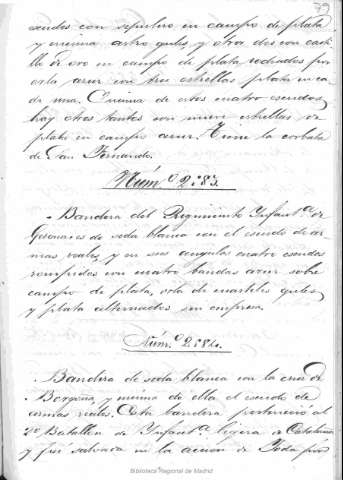 79
escudos con sepulcro en campo de plata
y encima astro gules, y otros dos con casti-
llo de oro en campo de plata rodeados por
orla azur con tres estrellas plata en ca-
da una. Encima de estos cuatro escudos,
hay otros tantos con nueve estrellas de
plata en campo azur. Tiene la corbata
de San Fernando.
Núm.º 2.183.
Bandera del Regimiento Infant.ª de
de seda blanca con el escudo de ar-
mas reales, y en sus angulos cuatro escudos
rompidos con cuatro bandas azur sobre
campo de plata, orla de cuarteles gules
y plata alternados sin empresa.
Núm.º 2.184.
Bandera de seda blanca con la cruz de
Borgoña, y encima de ella el escudo de
armas reales. Esta bandera perteneció al
2º Batallon de Infant.ª ligera de Cataluña
y fué salvada en la accion de
Biblioteca Regional de Madrid